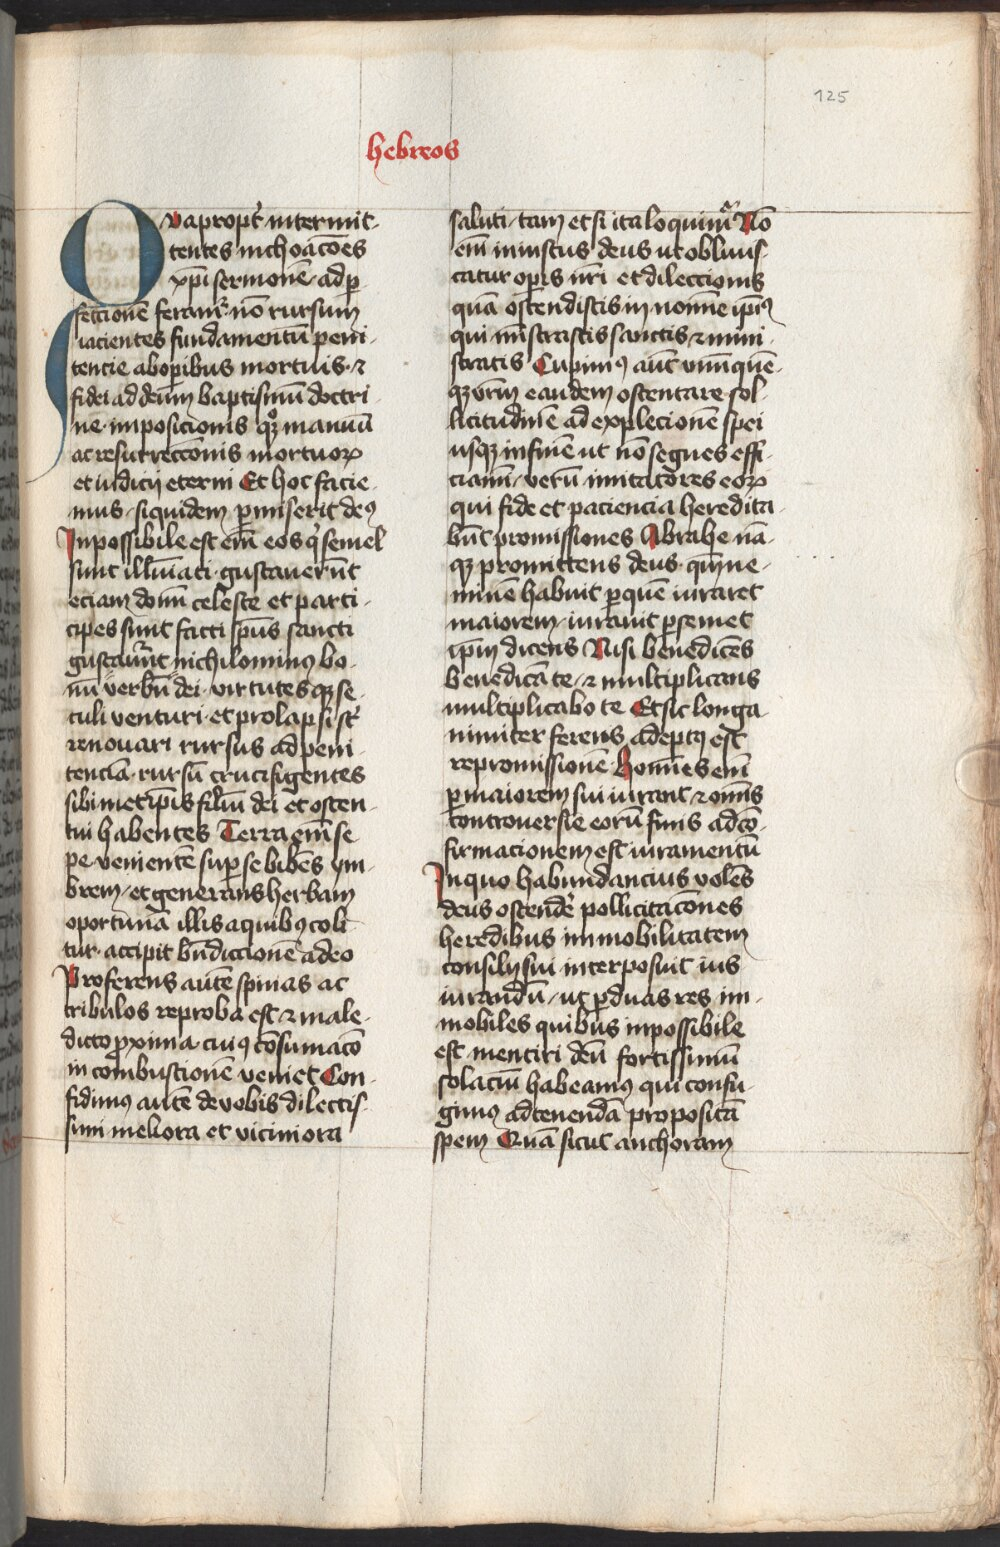 125
hebreos
Qvapropt̉ intermit-
tentes inchoac̄oēs
xp̄i sermonē · ad ꝑ-
fectionē feram̉ nō rursum
iacientes fundamentū peni-
tencie ab oꝑibus mortuis · ⁊
fidei ad deūm baptismū doctri-
ne · imposicionis qꝫ manuū
ac resurrecc̄onis mortuoꝝ
et iudicij eterni Et hoc facie-
mus · siquidem ꝑmiserit deꝰ
Inpossibile est em̄ eos qͥ semel
sunt illūiati · gustauerūt
eciam donū celeste et parti-
cipes sunt facti sp̄us sancti
gustauer̄t nichilominꝰ bo-
nū verbū dei · virtutes qꝫ se-
culi venturi · et prolapsi st̄
renouari rursus ad peni-
tenciā · rursū crucifigentes
sibimetip̄is filiū dei et osten-
tui habentes Terra em̄ se-
pe venientē suꝑ se bibēs ym-
brem · et generans herbam
oportunā illis a quibꝰ coli-
tur · accipit bn̄diccionē a deo
Proferens autē spinas ac
tribulos reproba est ⁊ male-
dicto ꝓxima cuiꝰ cōsumacō
in combustionē veniet Con-
fidimꝰ autē de vobis dilectis-
simi meliora et viciniora
saluti · tam etsi ita loquimͬ Nō
em̄ iniustus deus ut obliuis-
catur oꝑis nr̄i et dileccionis
quā ostendistis in nomīe ip̄iꝰ
qui mīstrastis sanctis ⁊ mini-
stratis Cupimꝰ aūt vnūquē-
qꝫ vr̄m eandem ostentare sol-
licitudinē ad explecionē spei
usqꝫ in finē ut nō segnes effi-
ciam̄ · verū imitatores eoꝝ
qui fide et paciencia heredita-
būt promissiones Abrahe nā-
qꝫ promittens deus · qm̄ ne-
minē habuit ꝑ quē iuraret
maiorem · iurauit ꝑ semet
ip̄m dicens Nisi benedicēs
benedicā te · ⁊ multiplicans
multiplicabo te Et sic longa-
nimiter ferens adeptꝰ est
repromissionē Homīes em̄
ꝑ maiorem sui iurant ⁊ om̄is
controuersie eorū finis ad cō-
firmacionem est iuramentū
In quo habundancius volēs
deus ostende̓ pollicitac̄ones
heredibus immobilitatem
consilij sui interposuit ius
iurandū · ut ꝑ duas res im-
mobiles quibus inpossibile
est mentiri deū fortissimū
solaciū habeamꝰ qui confu-
gimꝰ ad tenendā propositā
spem Quā sicut anchoram